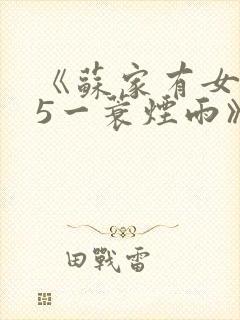 《蘇家有女
5一蓑煙雨》
田戰雷